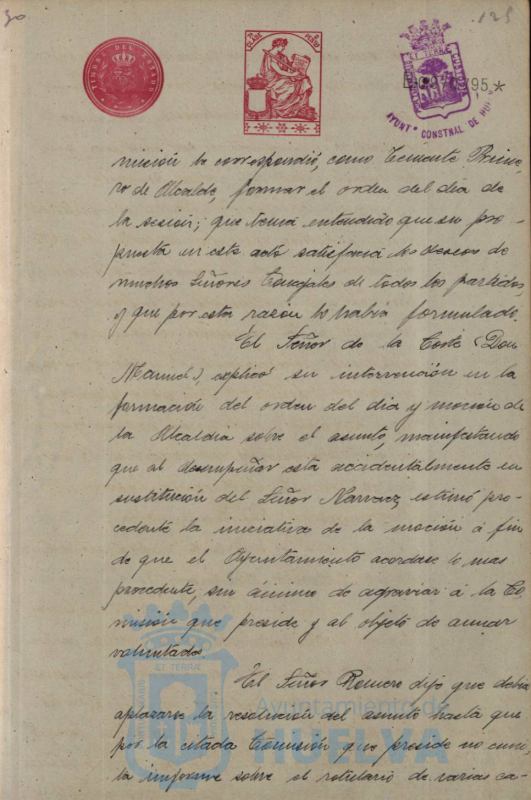 30
125
TIMBRE DEL ESTADO
CLASE
ET TERRÆ
AYUNTº CONSTNAL DE HU
misión le correspondió, como Teniente Prime-
ro de Alcalde, formar el orden del día de
la sesión; que tenía entendido que su pro-
puesta en este acto satisfacía los deseos de
muchos Señores Concejales de todos los partidos,
y que por esta razón la había formulado.
El Señor de la Corte (Don
Manuel), explicó su intervención en la
formación del orden del día y moción de
la Alcaldía sobre el asunto, manifestando
que al desempeñar esta accidentalmente en
sustitución del Señor Narvaez estimó pro-
cedente la iniciativa de la moción á fin
de que el Ayuntamiento acordase lo mas
procedente, sin ánimo de agraviar á la Co-
misión que preside y al objeto de aunar
voluntades.
El Señor Romero dijo que debía
aplazarse la resolución del asunto hasta que
por la citada Comisión que preside no eva-
la informe sobre el rotulario de varias ca-
ET TERRÆ
Ayuntamiento de
HUELVA